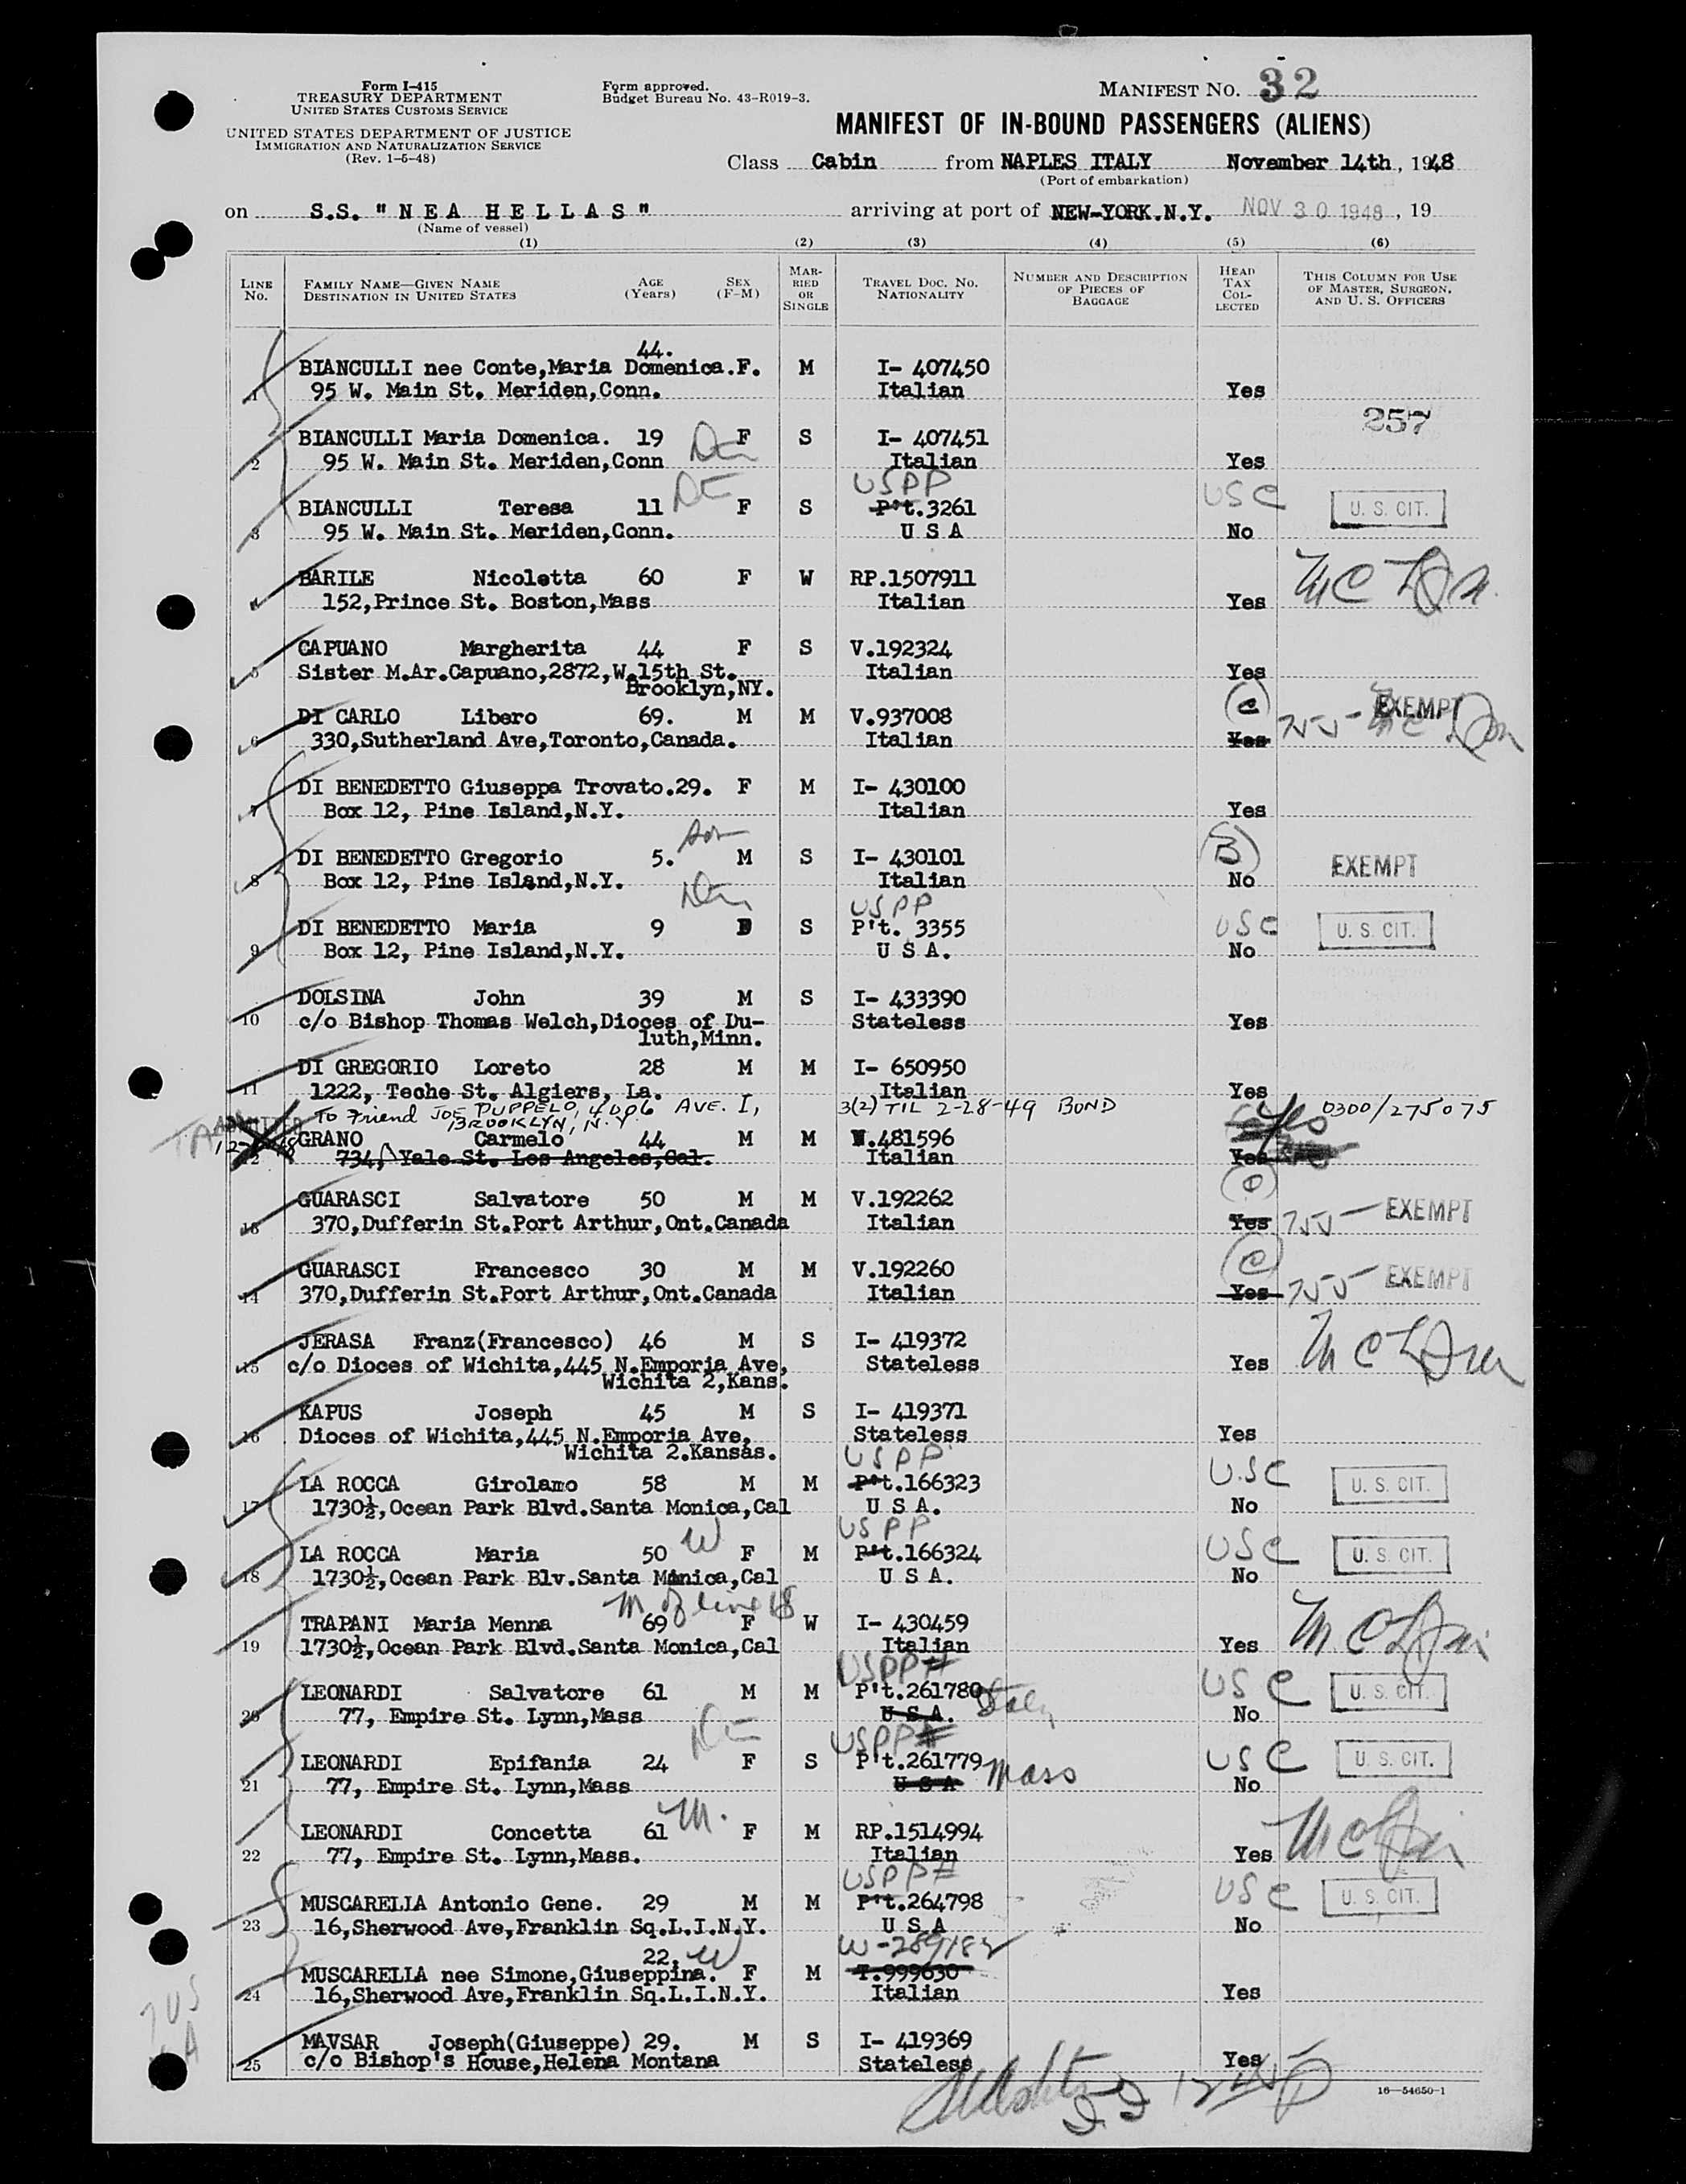 Form I-415
TREASURY DEPARTMENT
UNITED STATES CUSTOMS SERVICE
UNITED STATES DEPARTMENT OF JUSTICE
IMMIGRATION AND NATURALIZATION SERVICE
(Rev. 1-5-48)
Form approved.
Budget Bureau No. 43-R019-3.
MANIFEST NO. 32
MANIFEST OF IN-BOUND PASSENGERS (ALIENS)
Class Cabin from NAPLES ITALY November 14th, 1948
(Port of embarkation)
on S.S. "NEA HELLAS" arriving at port of NEW-YORK.N.Y. NOV 30 1948, 19
(Name of vessel)
(1) (2) (3) (4) (5) (6)
LINE NO. FAMILY NAME—GIVEN NAME DESTINATION IN UNITED STATES AGE (Years) SEX (F-M) MARRIED OR SINGLE TRAVEL DOC. NO. NATIONALITY NUMBER AND DESCRIPTION OF PIECES OF BAGGAGE HEAD TAX COLLECTED THIS COLUMN FOR USE OF MASTER, SURGEON, AND U. S. OFFICERS
44.
BIANCULLI nee Conte,Maria Domenica.F. M I- 407450
1 95 W. Main St. Meriden,Conn. Italian Yes
257
BIANCULLI Maria Domenica. 19 F S I- 407451
2 95 W. Main St. Meriden,Conn Italian Yes
USPP
BIANCULLI Teresa 11 F S P't.3261 USC U. S. CIT.
3 95 W. Main St. Meriden,Conn. U S A No
BARILE Nicoletta 60 F W RP.1507911
4 152,Prince St. Boston,Mass Italian Yes
CAPUANO Margherita 44 F S V.192324
5 Sister M.Ar.Capuano,2872,W.15th St. Italian Yes
Brooklyn,NY.
DI CARLO Libero 69. M M V.937008 (C) EXEMPT
6 330,Sutherland Ave,Toronto,Canada. Italian Yes
DI BENEDETTO Giuseppa Trovato.29. F M I- 430100
7 Box 12, Pine Island,N.Y. Italian Yes
Son
DI BENEDETTO Gregorio 5. M S I- 430101 (B) EXEMPT
8 Box 12, Pine Island,N.Y. Italian No
USPP
DI BENEDETTO Maria 9 S P't. 3355 USC U. S. CIT.
9 Box 12, Pine Island,N.Y. U S A. No
DOLSINA John 39 M S I- 433390
10 c/o Bishop Thomas Welch,Dioces of Du- Stateless Yes
luth,Minn.
DI GREGORIO Loreto 28 M M I- 650950
11 1222, Teche St. Algiers, La. Italian Yes
To Friend JOE PUPPELO, 4006 AVE. I, 3(2) TIL 2-28-49 BOND 0300/275075
BROOKLYN, N.Y.
GRANO Carmelo 44 M M V.481596 Yes
12 734, Yale St. Los Angeles,Cal. Italian Yes
GUARASCI Salvatore 50 M M V.192262 EXEMPT
13 370,Dufferin St.Port Arthur,Ont.Canada Italian Yes
GUARASCI Francesco 30 M M V.192260 (C) EXEMPT
14 370,Dufferin St.Port Arthur,Ont.Canada Italian Yes
JERASA Franz(Francesco) 46 M S I- 419372
15 c/o Dioces of Wichita,445 N.Emporia Ave, Stateless Yes
Wichita 2,Kans.
KAPUS Joseph 45 M S I- 419371
16 Dioces of Wichita,445 N.Emporia Ave, Stateless Yes
Wichita 2.Kansas.
USPP
LA ROCCA Girolamo 58 M M P't.166323 USC U. S. CIT.
17 1730½,Ocean Park Blvd.Santa Monica,Cal U S A. No
USPP
LA ROCCA Maria 50 W F M P't.166324 USC U. S. CIT.
18 1730½,Ocean Park Blv.Santa Monica,Cal U S A. No
M of line 18
TRAPANI Maria Menna 69 F W I- 430459
19 1730½,Ocean Park Blvd.Santa Monica,Cal Italian Yes
USPP#
LEONARDI Salvatore 61 M M P't.261780 Italy USC U. S. CIT.
20 77, Empire St. Lynn,Mass U S A. No
USPP#
LEONARDI Epifania 24 F S P't.261779 Mass USC U. S. CIT.
21 77, Empire St. Lynn,Mass U S A No
LEONARDI Concetta 61 M. F M RP.1514994
22 77, Empire St. Lynn,Mass. Italian Yes
USPP#
MUSCARELLA Antonio Gene. 29 M M P't.264798 USC U. S. CIT.
23 16,Sherwood Ave,Franklin Sq.L.I.N.Y. U S A No
22. W W-289182
MUSCARELLA nee Simone,Giuseppina. F M T.999630
24 16,Sherwood Ave,Franklin Sq.L.I.N.Y. Italian Yes
MAVSAR Joseph(Giuseppe) 29. M S I- 419369
25 c/o Bishop's House,Helena Montana Stateless Yes
16—54650-1